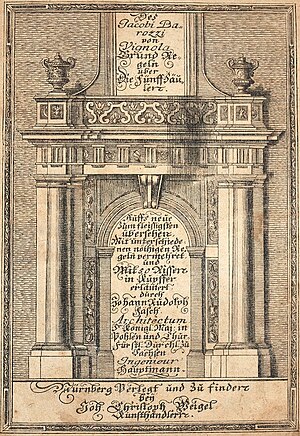 Des
Jacobi Ba-
rozzi
von
Vignola
Grund Re-
geln
über
Die Fünff Säu-
len.
Auffs neue
Zum fleissigsten
übersehen.
Mit unterschiede-
nen nöthigen Re-
geln vermehret
und
Mit 50 Rissen
in Kupffer
erläutert
durch
Johann Rudolph
Fäsch
Architectum
Königl. Maj: in
Pohlen und Chür-
fürstl. Dürchl. zü
Sachsen
Ingenieur
Hauptmann.
Nürnberg Verlegt und Zü finden
bey
Joh. Christoph Weigel
Kunsthändlern.